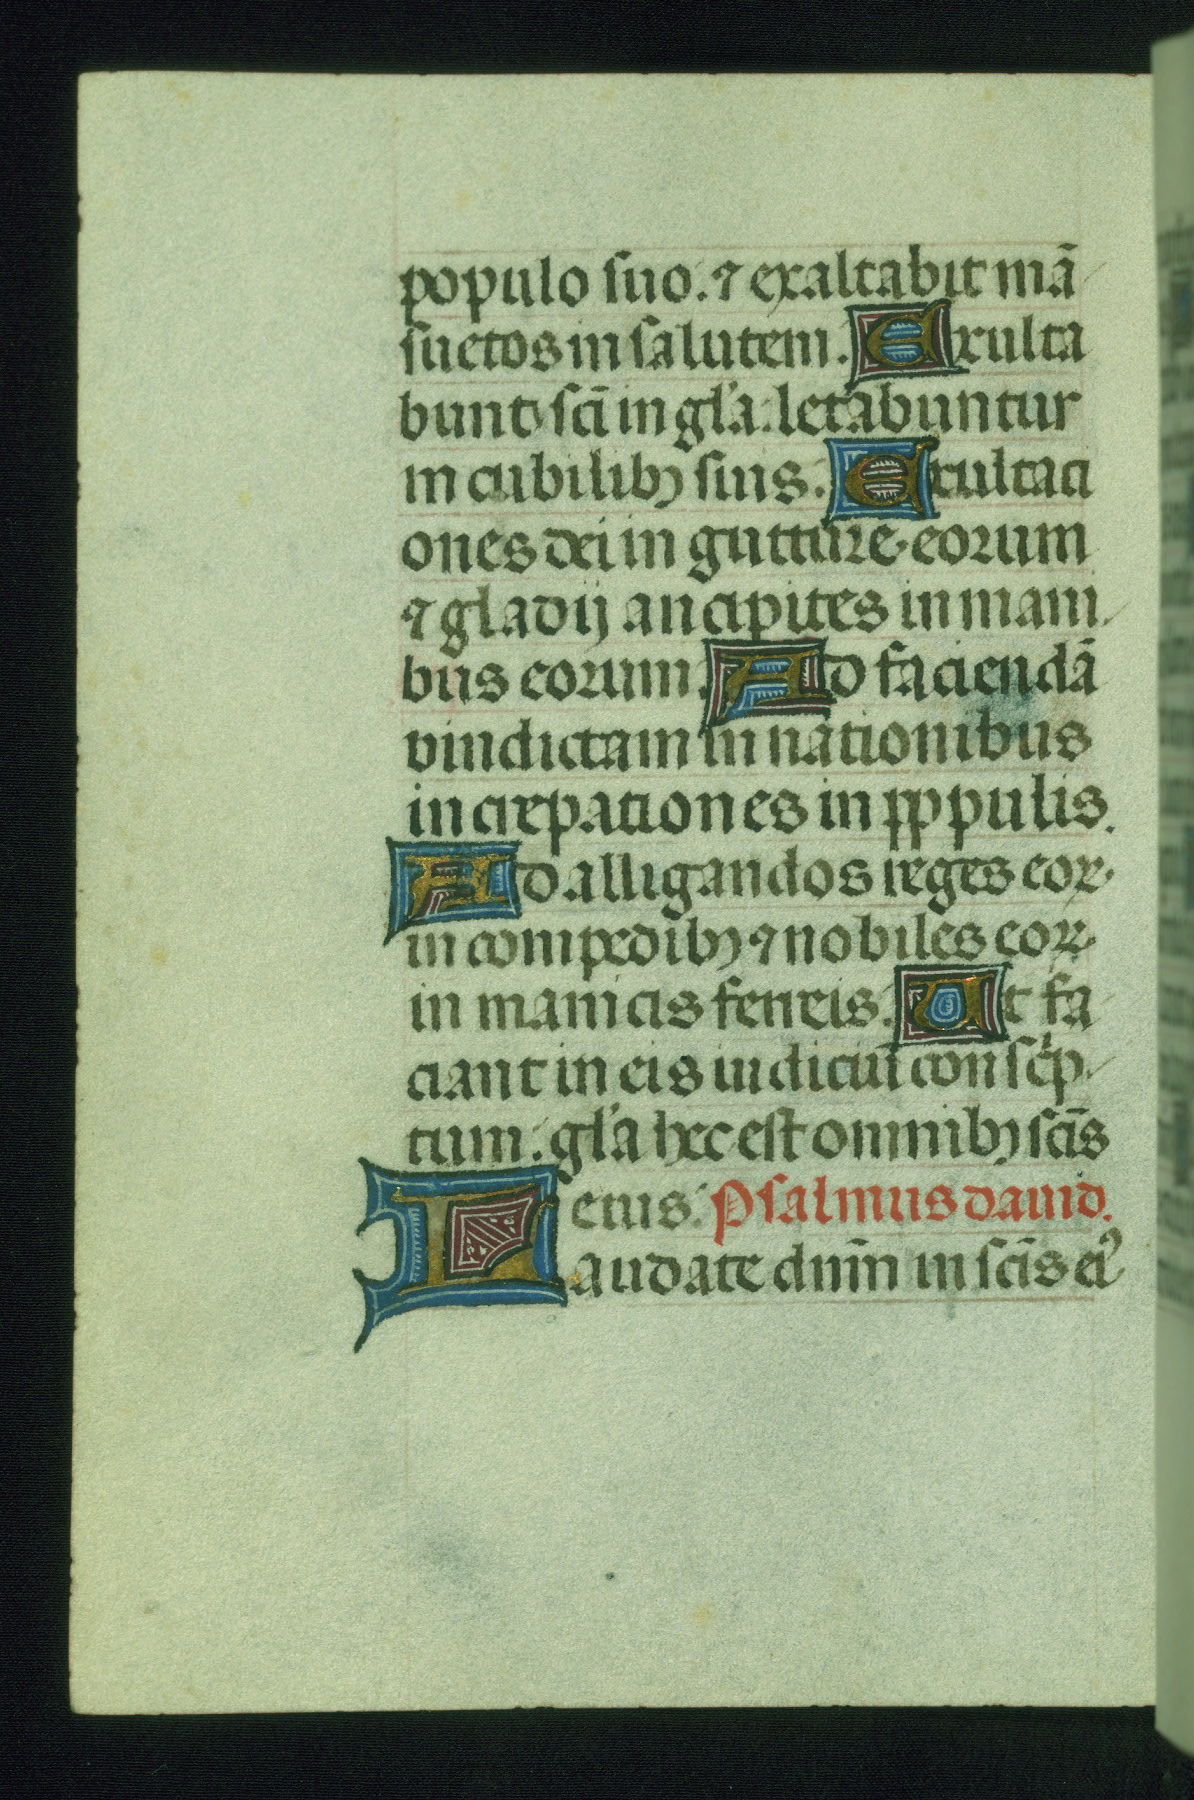 populo suo. ⁊ exaltabit mā
suetos in salutem. Exulta
bunt scī in gl'a: letabuntur
in cubilibꝫ suis. Exultaci
ones dei in gutture eorum
⁊ gladij ancipites in mani
bus eorum. Ad faciendā
vindictam in nationibus
increpationes in pppulis.
Ad alligandos reges eoꝝ
in compedibꝫ ⁊ nobiles eoꝝ
in manicis ferreis. Ut fa
ciant in eis iudiciū conscrip
tum: gl'a hec est omnibꝫ scīs
eius: Psalmus dauid.
Laudate dnm̄ in scīs eiꝰ